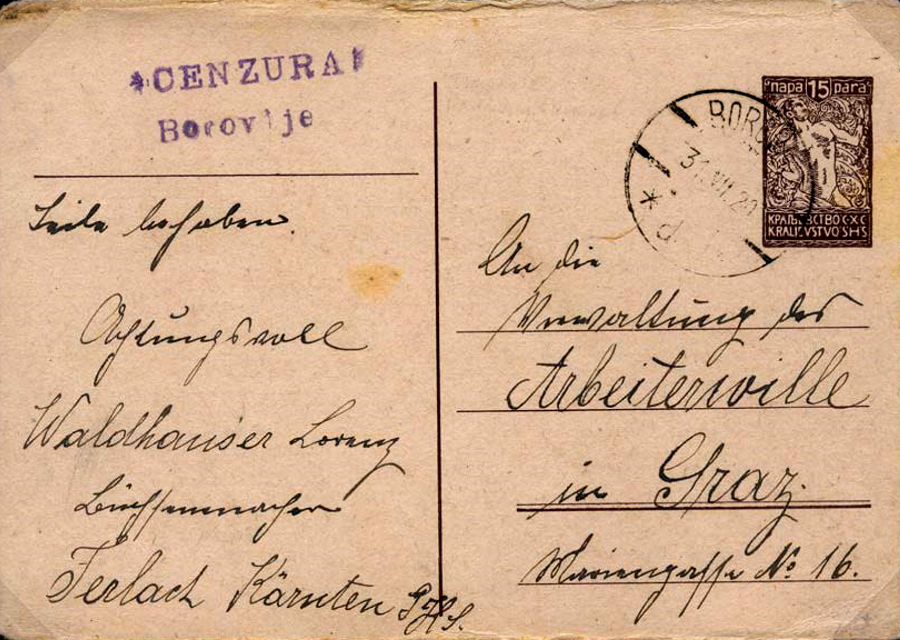 *CENZURA*
Borovlje
Seite behoben.
Achtungsvoll
Waldhauser Lorenz
Büchsenmacher
Ferlach Kärnten S.H.S.
napa 15 para
КРАЉЕВСТВО С·Х·С
KRALJEVSTVO SHS
BORO
31.VII.20
An die
Verwaltung des
Arbeiterwille
in Graz.
Mariengasse No 16.